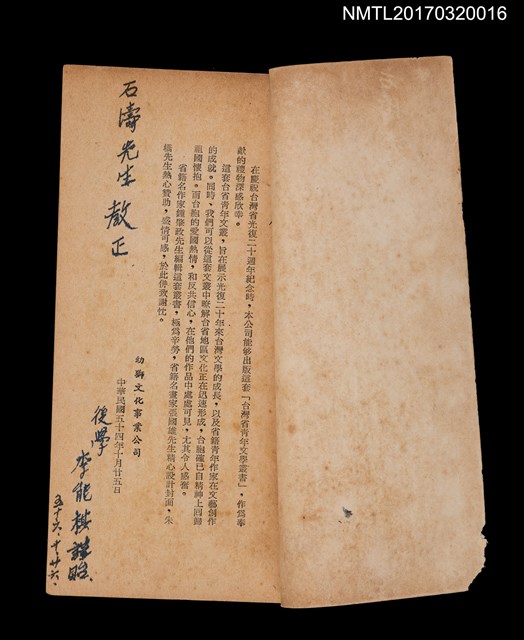 NMTL20170320016
在慶祝台灣省光復二十週年紀念時，本公司能够出版這套「台灣省青年文學叢書」，作爲奉
獻的禮物深感欣幸。
這套台省青年文叢，旨在展示光復二十年來台灣文學的成長，以及省籍青年作家在文藝創作
的成就。同時，我們可以從這套文叢中瞭解台省地區文化正在迅速形成，台胞確已自精神上回歸
祖國懷抱。而台胞的愛國熱情，和反共信心，在他們的作品中處處可見，尤其令人感奮。
省籍名作家鍾肇政先生編輯這套叢書，極爲辛勞，省籍名畫家張國雄先生精心設計封面，朱
橋先生熱心贊助，盛情可感，於此併致謝忱。
幼獅文化事業公司
中華民國五十四年十月廿五日
石濤先生 教正
後學
李能棋 謹貽
五十六、十、廿六、